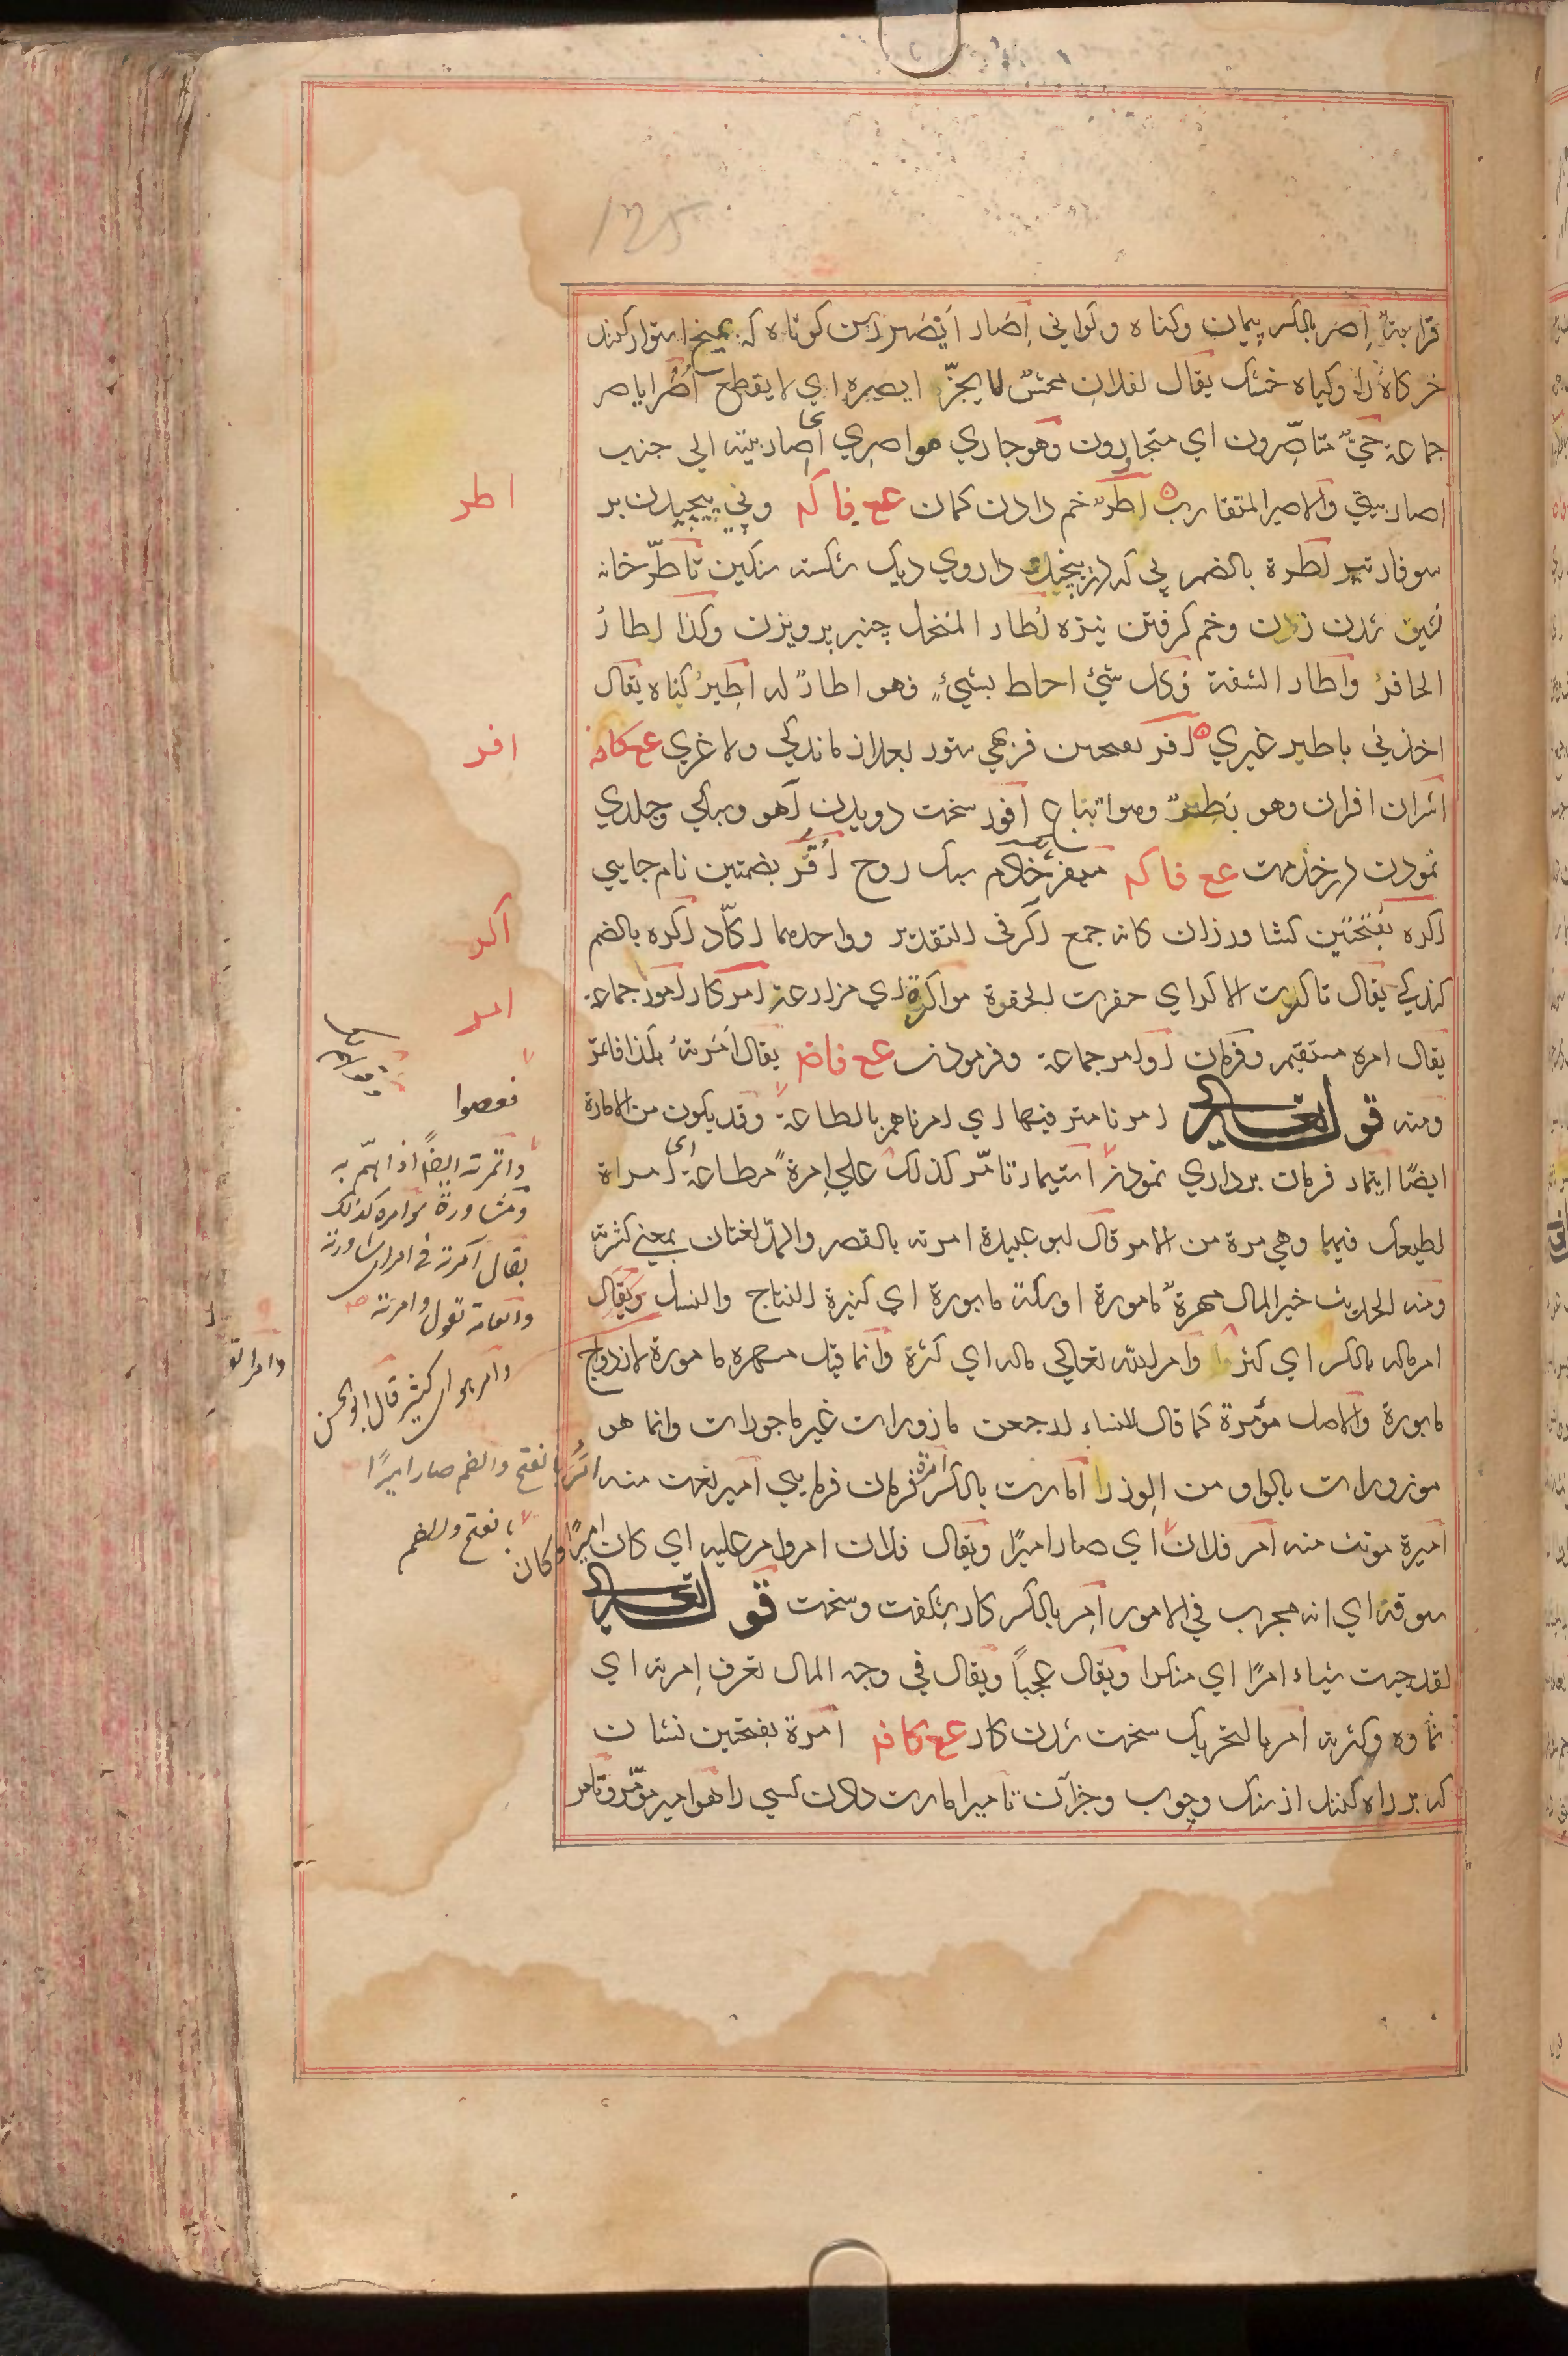 125
قرابتہ اِصر بالكسر پیمان وكناه وكراني اِصار اَیصر رسن كوتاه كه بمیخ استوار كنند
خركاه را وكیاه خشك یقال لفلان محشّ لا یجزّ ایصره اي لا یقطع اُصُر ایاصر
جماعة حيّ متآصِّرون اي متجاورون وهو جاري مواصري اي اصار بیته الي جنب
اصار بیتي والاصیر المتقارب اطر خم دادن كمان ع ع فا كه وپي پیچیدن بر
سوفار تیر اطرة بالضم پي كه در پیچند داروي دیك شكسته سنكین تأطّر خانه
نشین شدن زن وخم كرفتن نیزه اطار المنخل چنبر پرویزن وكذا اطار
الحافر واطار الشفة وكل شيء احاط بشيءٍ فهو اطار له اطیر كناه یقال
اخذني باطیر غیري افر بفتحتین فربهي ستور بعد از ماندكي ولاغري ع ع كا فه
اشران افران وهو بطر وهو اتباع افور سخت دویدن آهو وسبكي وجلدي
نمودن در خدمت ع ع فا كه میفر خادم سبك روح اُفُر بضمتین نام جایي
اكره بفتحتین كشاورزان كانه جمع اكر في التقدیر وواحدهما اكّار اكره بالضم
كندكي یقال تاكرت الاكر اي حفرت الحفرة مواكرة اي مزارعة امر كار امور جماعة
یقال امره مستقیم وفرمان اوامر جماعة وفرمودن ع ع فا ضم یقال اَمَرته بكذا فاتمر
ومنه قوله تعالي امرنا مترفیها اي امرناهم بالطاعة وقد یكون من الامارة
ایضًا ایتمار فرمان برداري نمودن استیمار تامّر كذلك علي اِمرة مطاعة اي امراة
اطیعك فیها وهي مرة من الامر قال ابو عبیدة امرته بالقصر والمدّ لغتان بمعني كثرته
ومنه الحدیث خیر المال مهرة مامورة او سكة مابورة اي كثیرة النتاج والنسل ویقال
امر ماله بالكسر اي كثر وآمر الله تعالي ماله اي كثرة وانما قیل مهره مامورة لازدواج
مابورة والاصل مؤمرة كما قال للنساء ارجعن مازورات غیر ماجورات وانما هو
موزورات بالواو من الوزر امارت بالكسر امرة فرمان فرمایي امیر نعت منه
امیرة مونث منه امر فلان اي صار امیرًا ویقال فلان امر وامر علیه اي كان امیرًا وكان
سوقة اي انه مجرب في الامور اِمر بالكسر كار شكفت وسخت قوله تعالي
لقد جیت شیاء امرًا اي منكرا ویقال عجباً ویقال في وجه المال تعرف اِمرته اي
نماوه وكثرته امر بالتحریك سخت شدن كار ع ع كا فه امرة بفتحتین نشان
كه بر راه كنند از سنك وچوب وجز آن تامیر امارت دادن كسي را هو امیر مؤمّر وتامر
اطر
افر
اكر
امر
فعصوا
وائتمرته ایضًا اذا همّ به
ومشاورة مؤامره كذلك
یقال آمرته في امر اي شاورته
والعامة تقول وامرته صح
وامر هو اي كثیر قال ابو الحسن
امُر بالفتح والضم صار امیرًا
بالفتح والضم